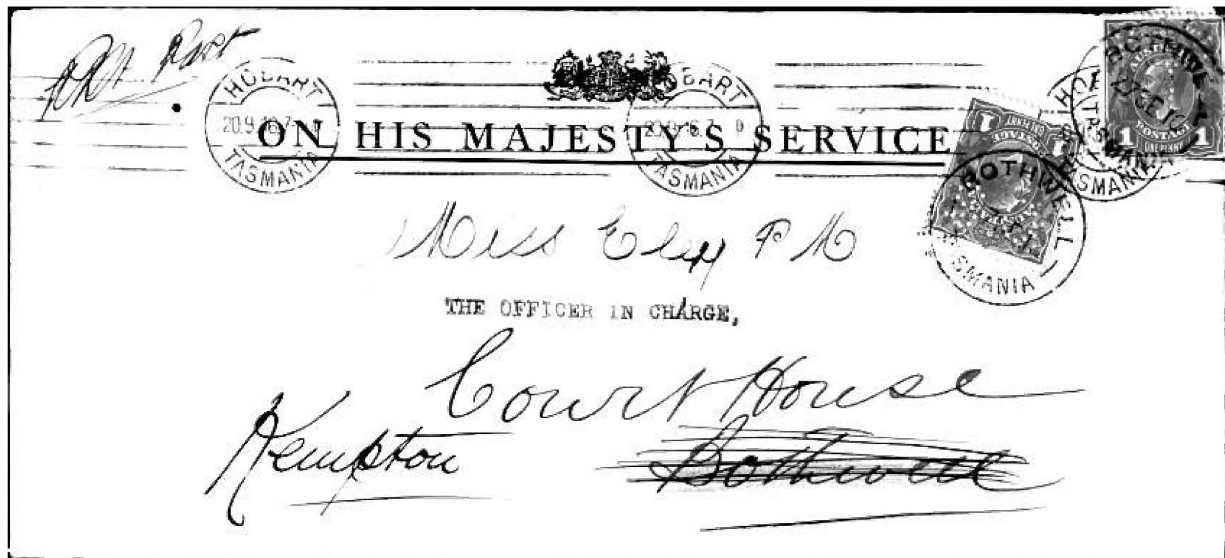 Post
HOBART
20.9.16.7
TASMANIA
HOBART
TASMANIA
ON HIS MAJESTY'S SERVICE
BOTHWELL
TASMANIA
1 POSTAGE 1
ONE PENNY
BOTHWELL
TASMANIA
Miss Elly P M
THE OFFICER IN CHARGE,
Court House
Kempton
Bothwell